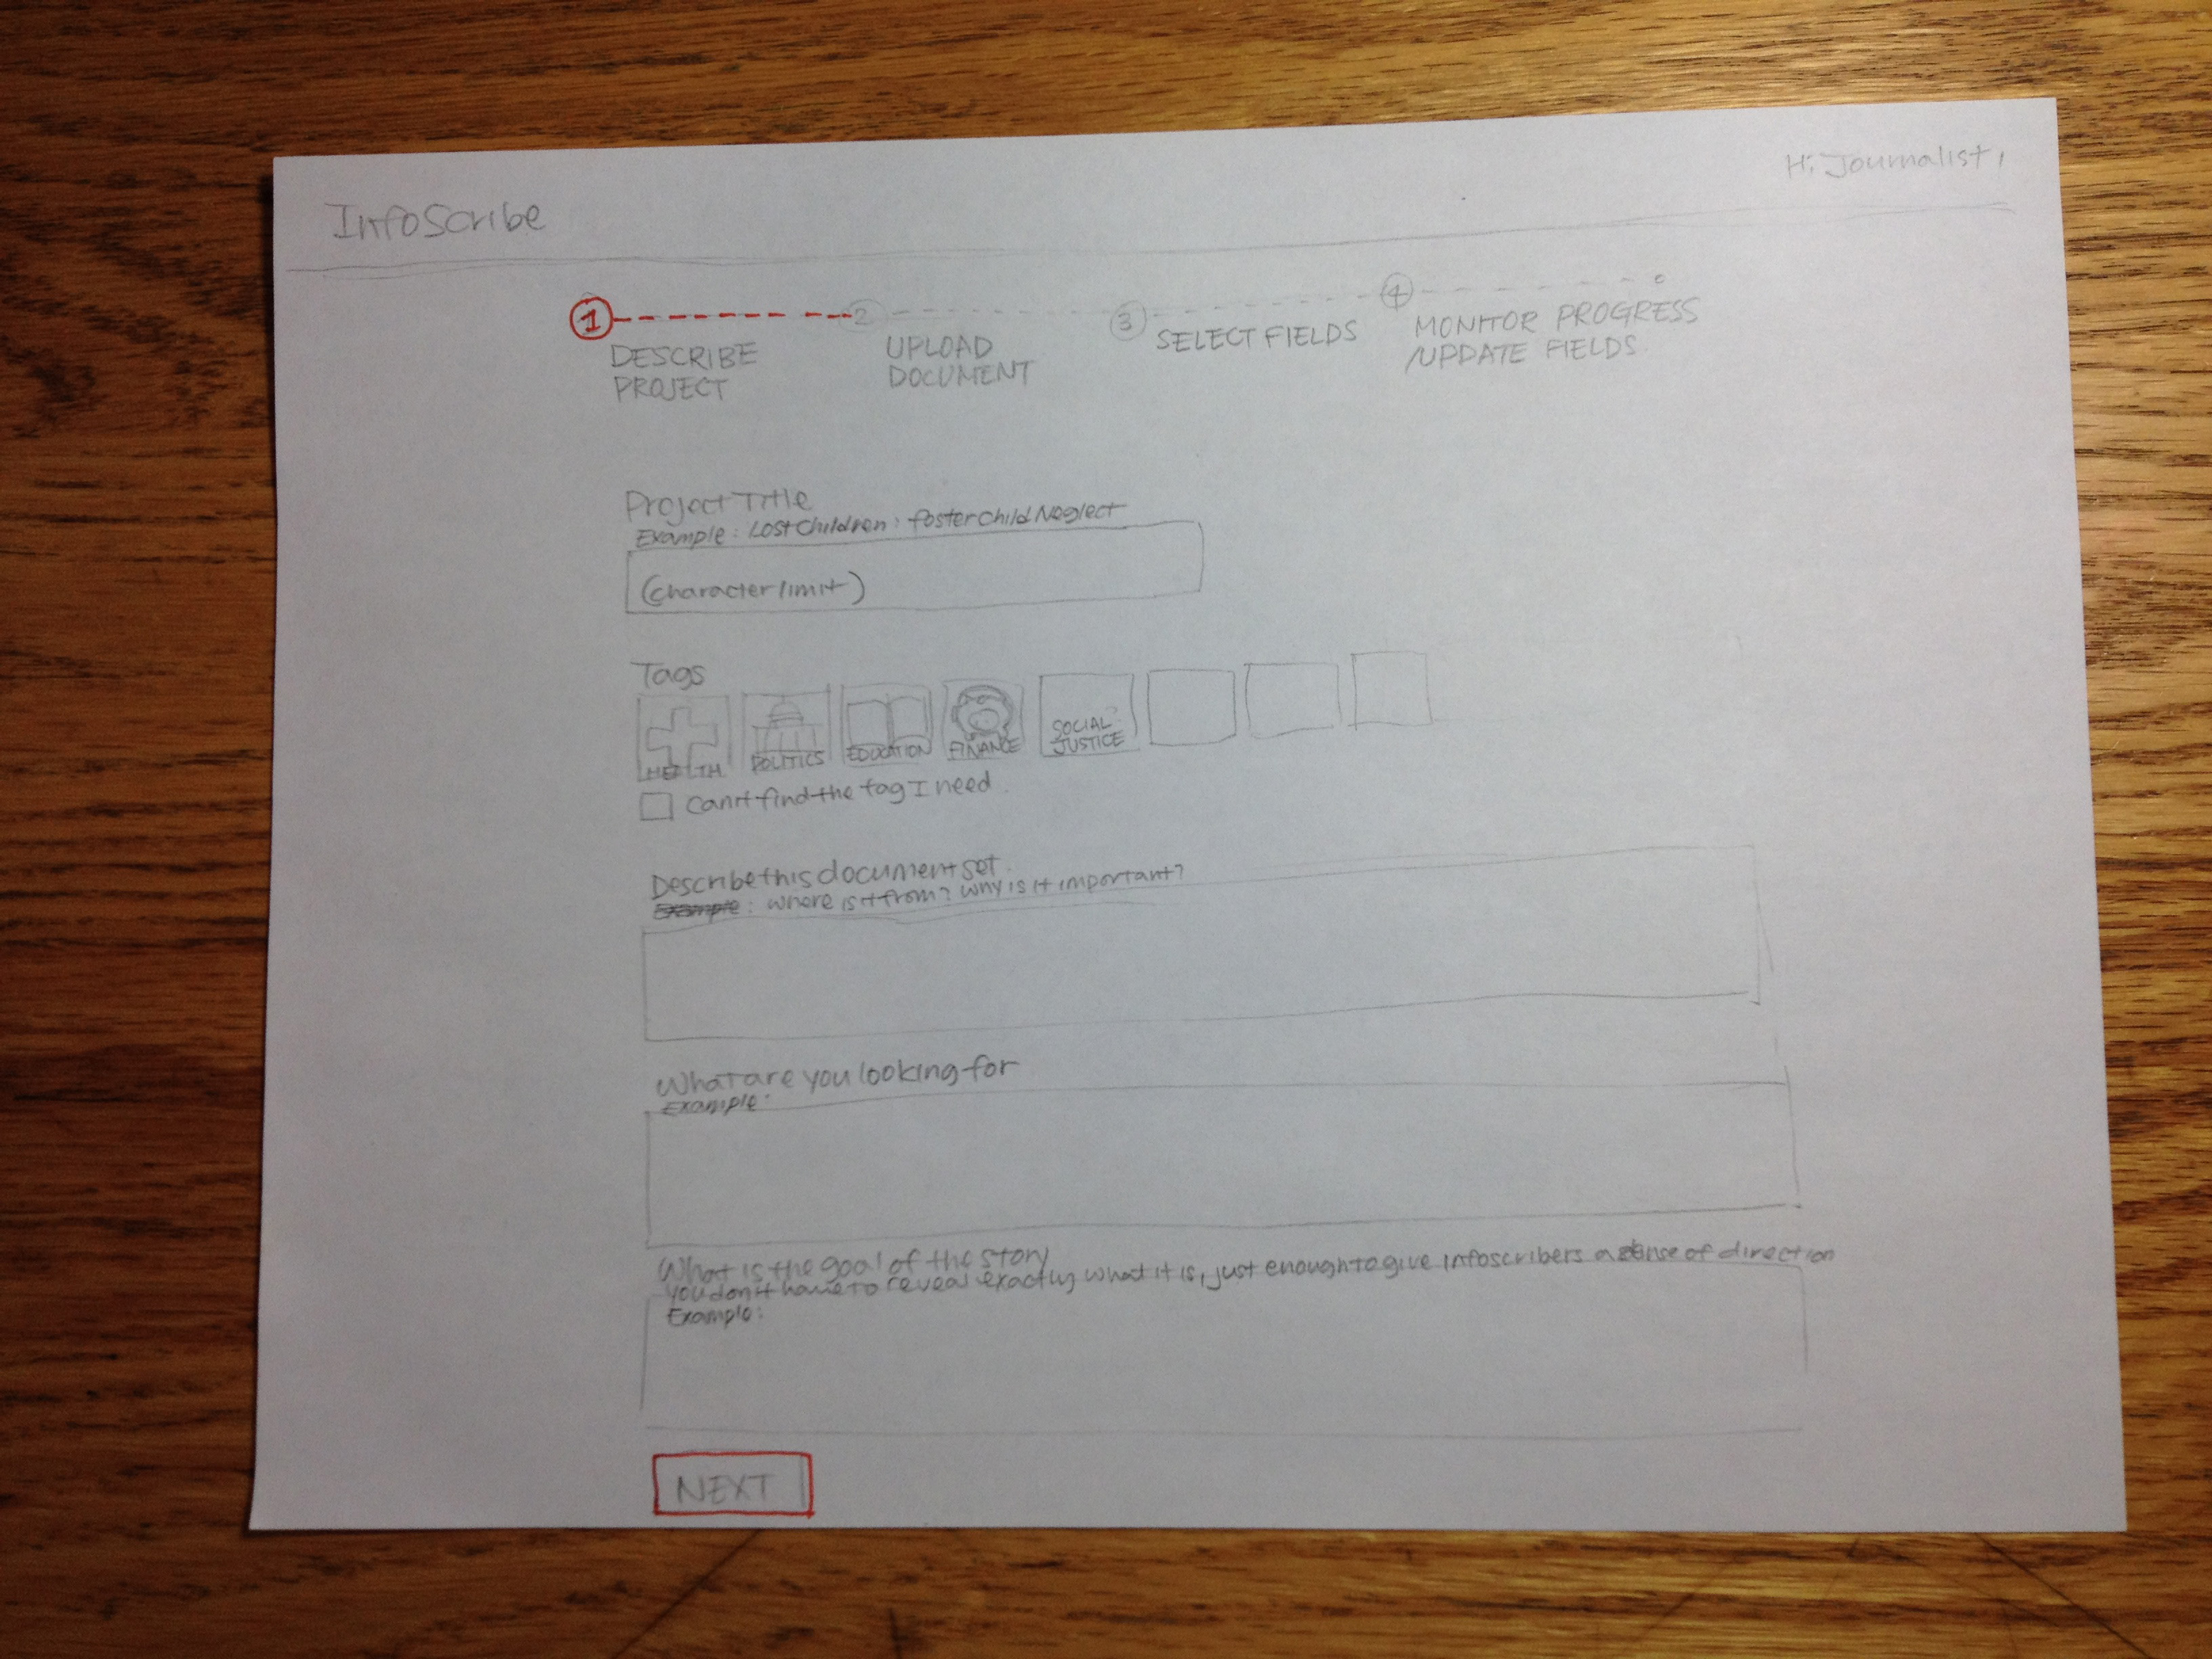 InfoScribe
Hi, Journalist,
1
2
3
4
DESCRIBE
PROJECT
UPLOAD
DOCUMENT
SELECT FIELDS
MONITOR PROGRESS
/UPDATE FIELDS.
Project Title
Example: Lost Children: Foster Child Neglect
(character limit)
Tags
HEALTH
POLITICS
EDUCATION
FINANCE
SOCIAL
JUSTICE
can't find the tag I need.
Describe this document set.
Example: where is it from? why is it important?
What are you looking for
Example:
What is the goal of the story
you don't have to reveal exactly what it is, just enough to give infoscribers a sense of direction
Example:
NEXT